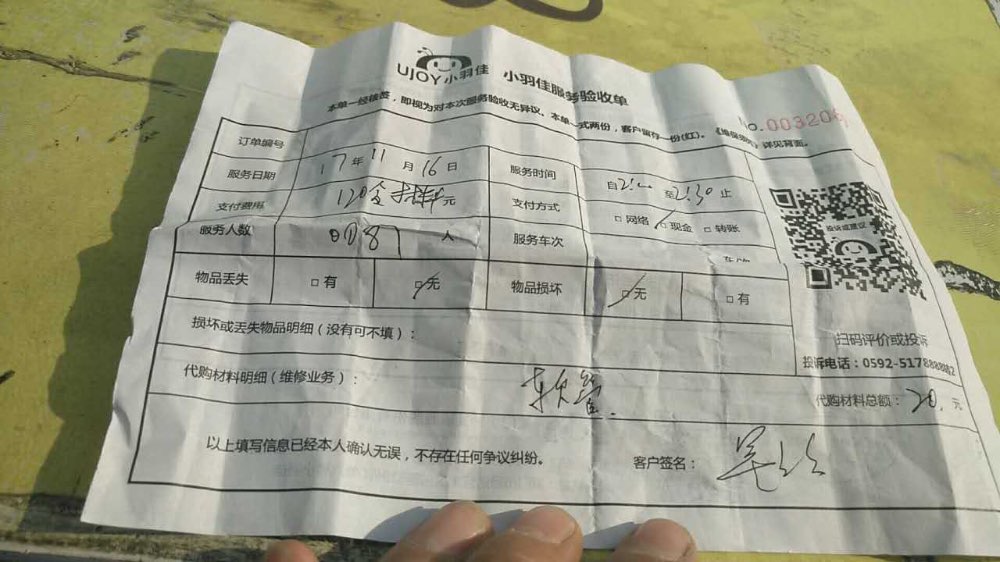 UJOY小羽佳 小羽佳服务验收单
本单一经核签，即视为对本次服务验收无异议。本单一式两份，客户留存一份(红)。《维保条例》详见背面。
No.003206
订单编号
服务日期 17年11月16日 服务时间 自2:00至2:30止
支付费用 120含 元 支付方式 □网络 □现金 □转账
服务人数 0087 人 服务车次
物品丢失 □有 □无 物品损坏 □无 □有
投诉或建议
损坏或丢失物品明细（没有可不填）：
扫码评价或投诉
投诉电话：0592-5178888
代购材料明细（维修业务）： 软管. 代购材料总额：20.元
以上填写信息已经本人确认无误，不存在任何争议纠纷。 客户签名：